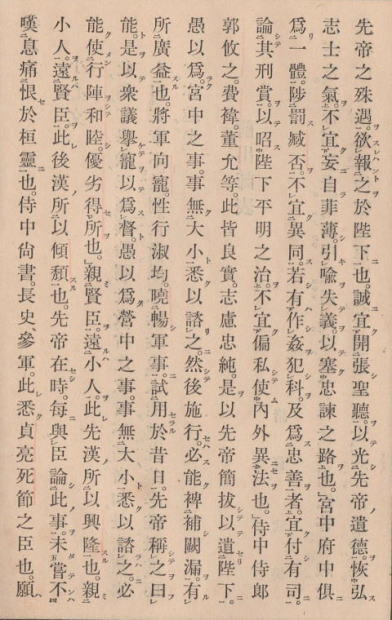 先帝之殊遇。欲報之於陛下也。誠宜開張聖聽。以光先帝遺德。恢弘
志士之氣。不宜妄自菲薄。引喩失義。以塞忠諫之路也。宮中府中俱
爲一體。陟罰臧否。不宜異同。若有作姦犯科。及爲忠善者。宜付有司。
論其刑賞。以昭陛下平明之治。不宜偏私使內外異法也。侍中侍郎
郭攸之。費禕。董允等。此皆良實。志慮忠純。是以先帝簡拔以遺陛下。
愚以爲宮中之事。事無大小。悉以諮之。然後施行。必能裨補闕漏。有
所廣益也。將軍向寵。性行淑均。曉暢軍事。試用於昔日。先帝稱之曰
能。是以衆議擧寵以爲督。愚以爲營中之事。事無大小。悉以諮之。必
能使行陣和睦。優劣得所也。親賢臣。遠小人。此先漢所以興隆也。親
小人。遠賢臣。此後漢所以傾頽也。先帝在時。每與臣論此事。未嘗不
嘆息痛恨於桓靈也。侍中尙書。長史參軍。此悉貞亮死節之臣也。願